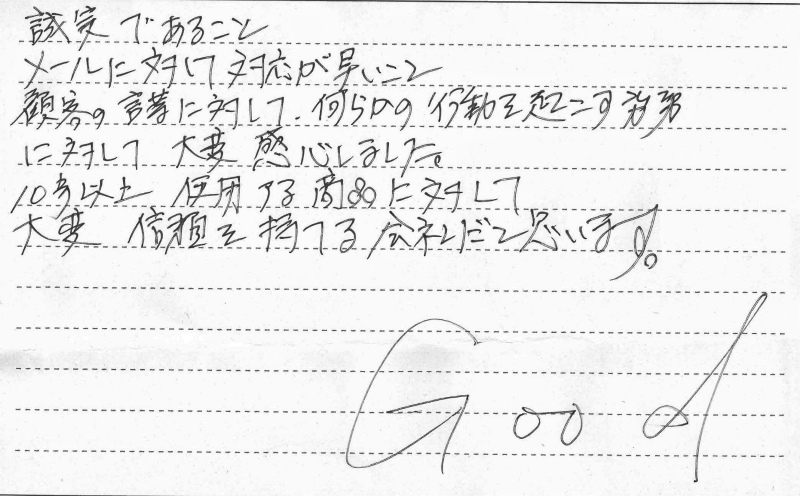 誠実であること
メールに対して対応が早いこと
顧客の言葉に対して、何らかの行動を起こす姿勢
に対して 大変 感心しました。
10年以上 使用する商品に対して
大変 信頼を持てる会社だと思います。
Good